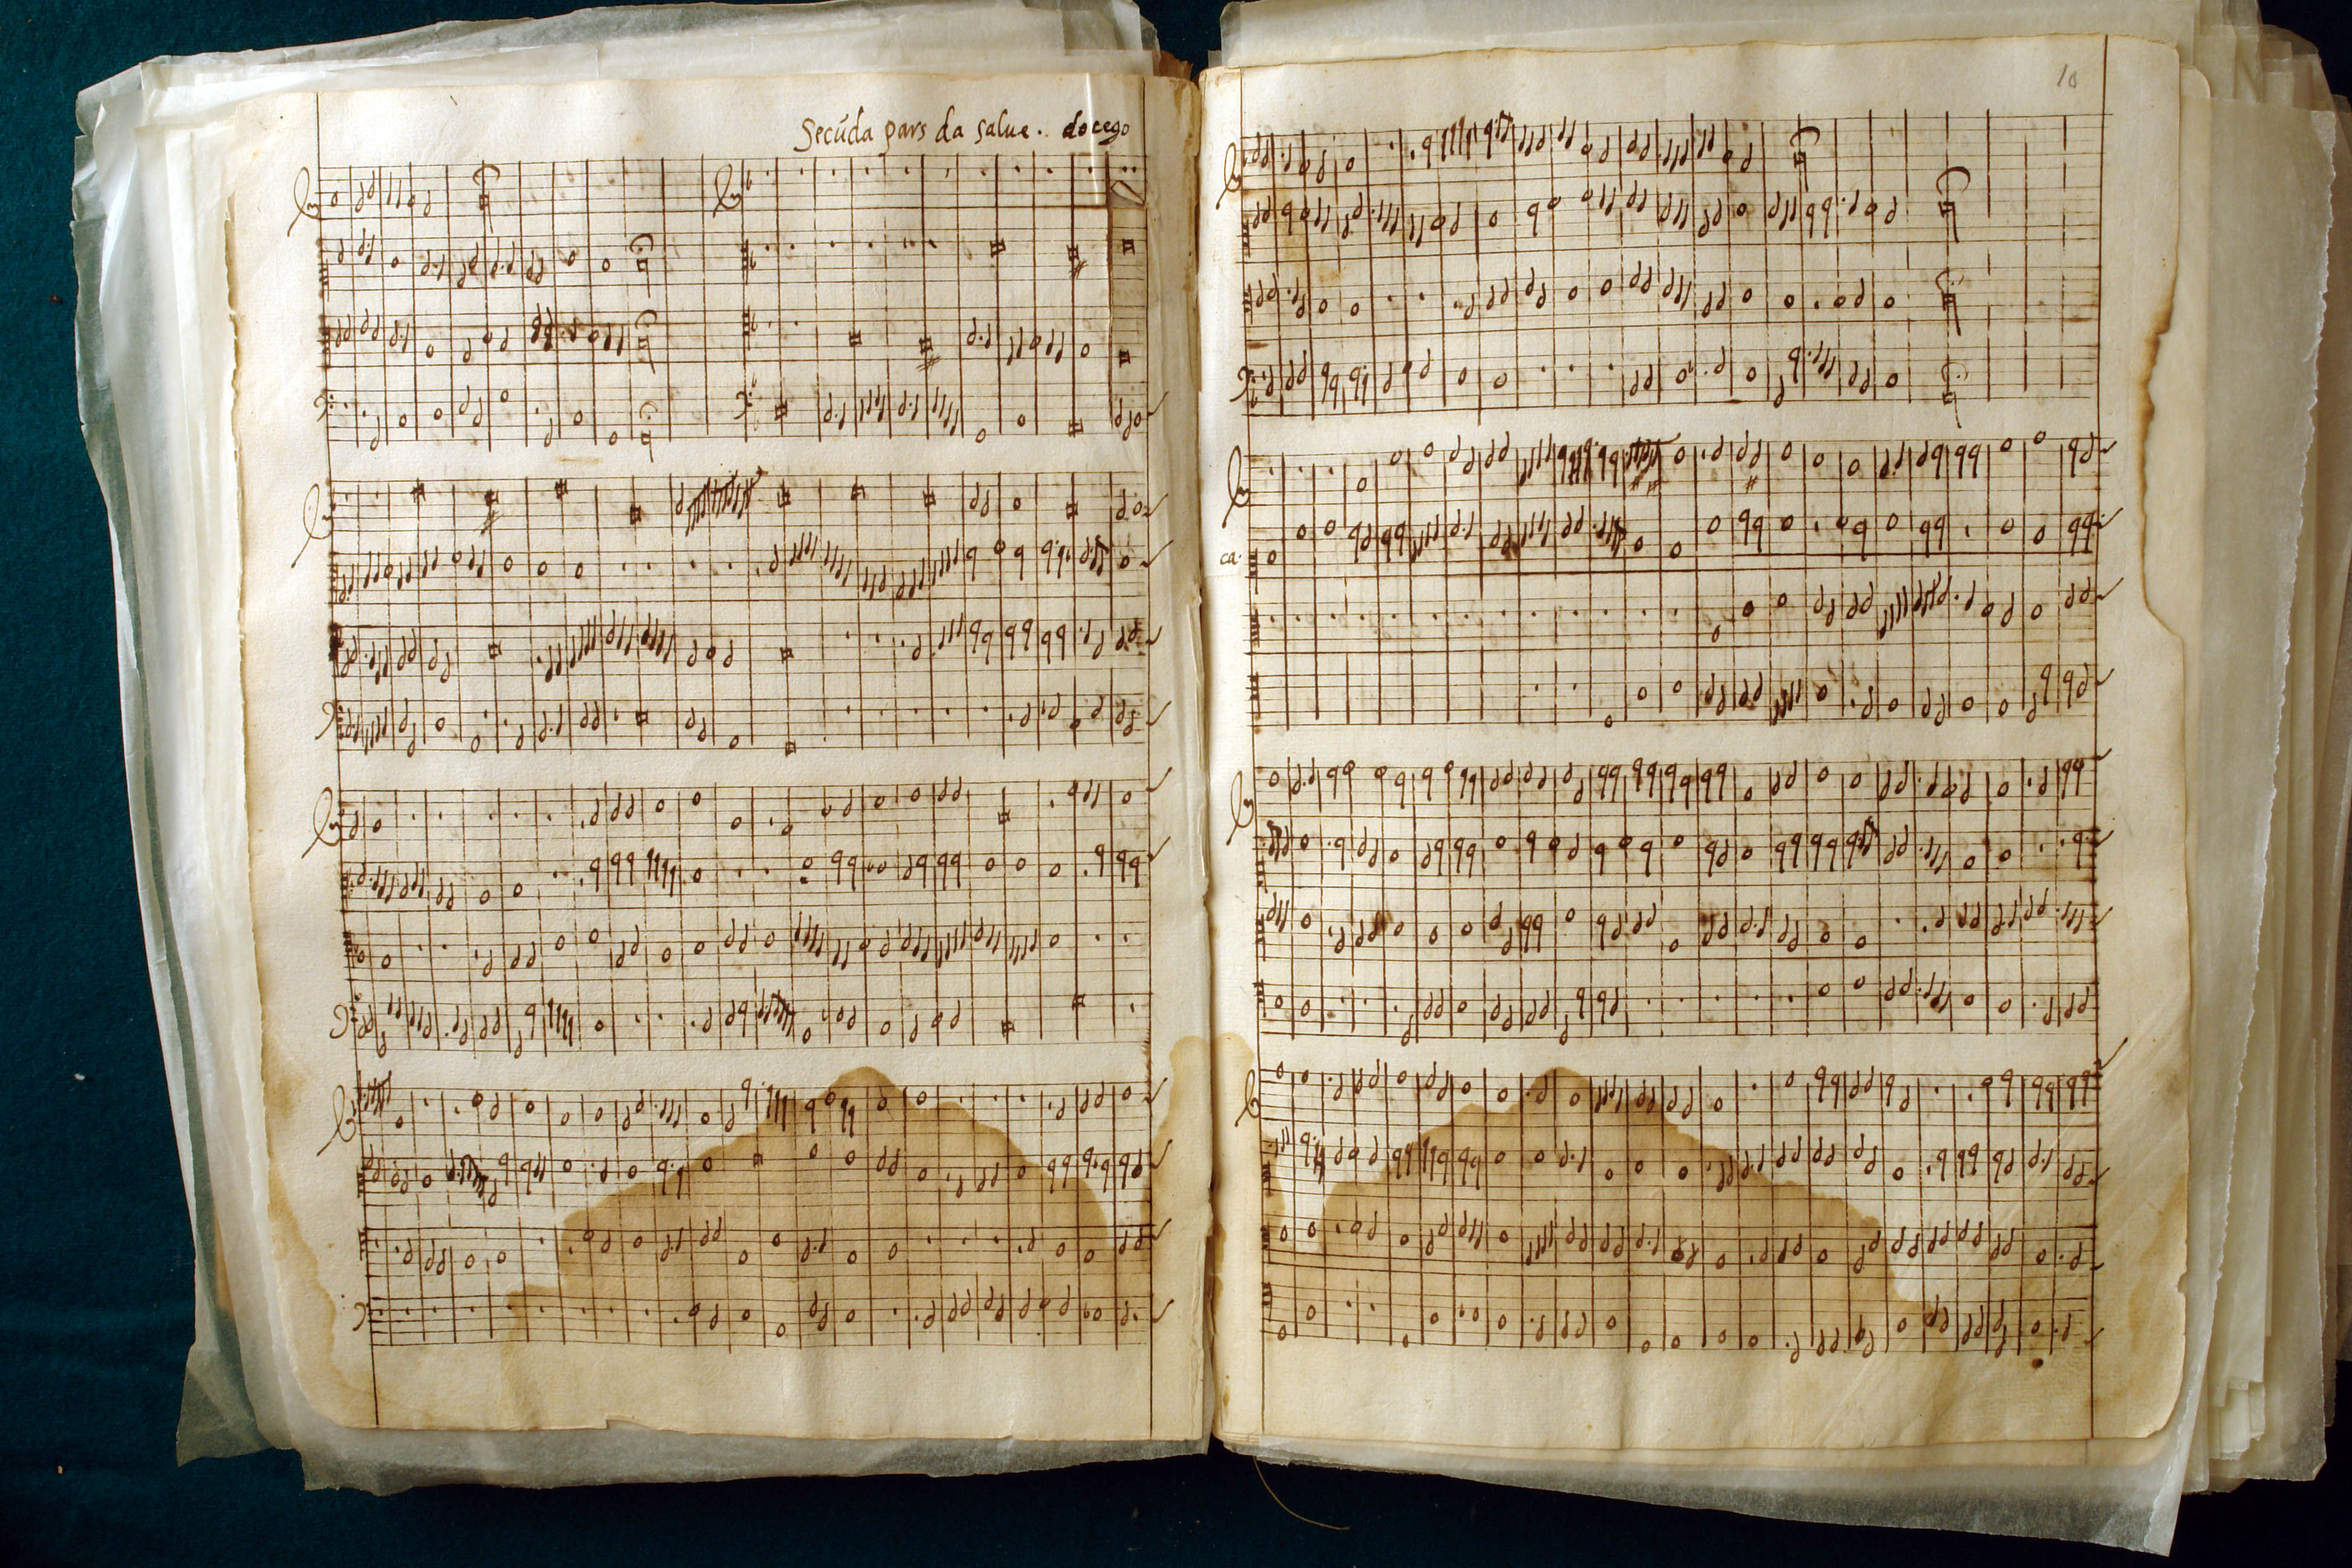 Secũda pars da salue . do cego
10
ca.